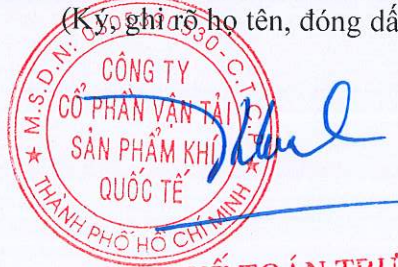 (Ký, ghi rõ họ tên, đóng dấ
M.S.D.N: - C.T.C.P
CÔNG TY
CỔ PHẦN VẬN TẢI
SẢN PHẨM KHÍ
QUỐC TẾ
THÀNH PHỐ HỒ CHÍ MINH
TOÁN